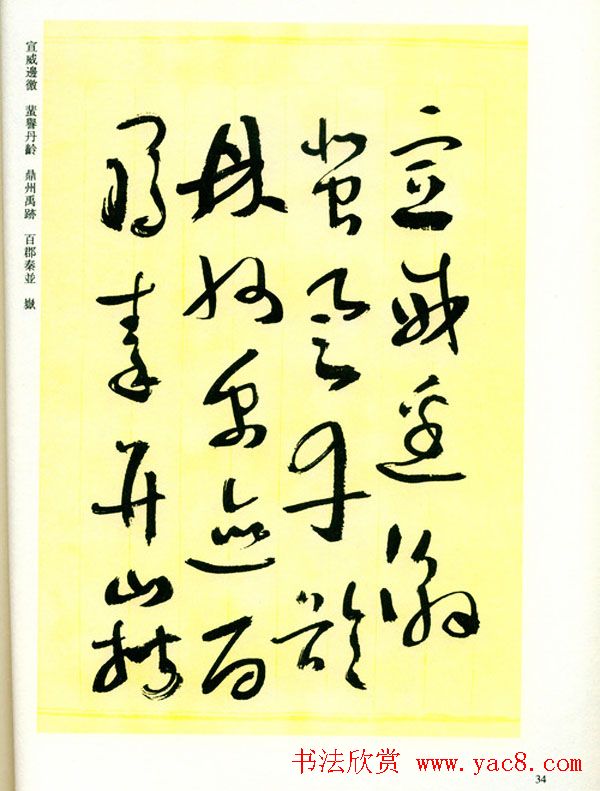 宣威邊徼
蜚譽丹齡
鼎州禹迹百
郡秦并嶽
宣威邊徼 蜚譽丹齡 鼎州禹跡 百郡秦並 嶽
书法欣赏 www.yac8.com
34